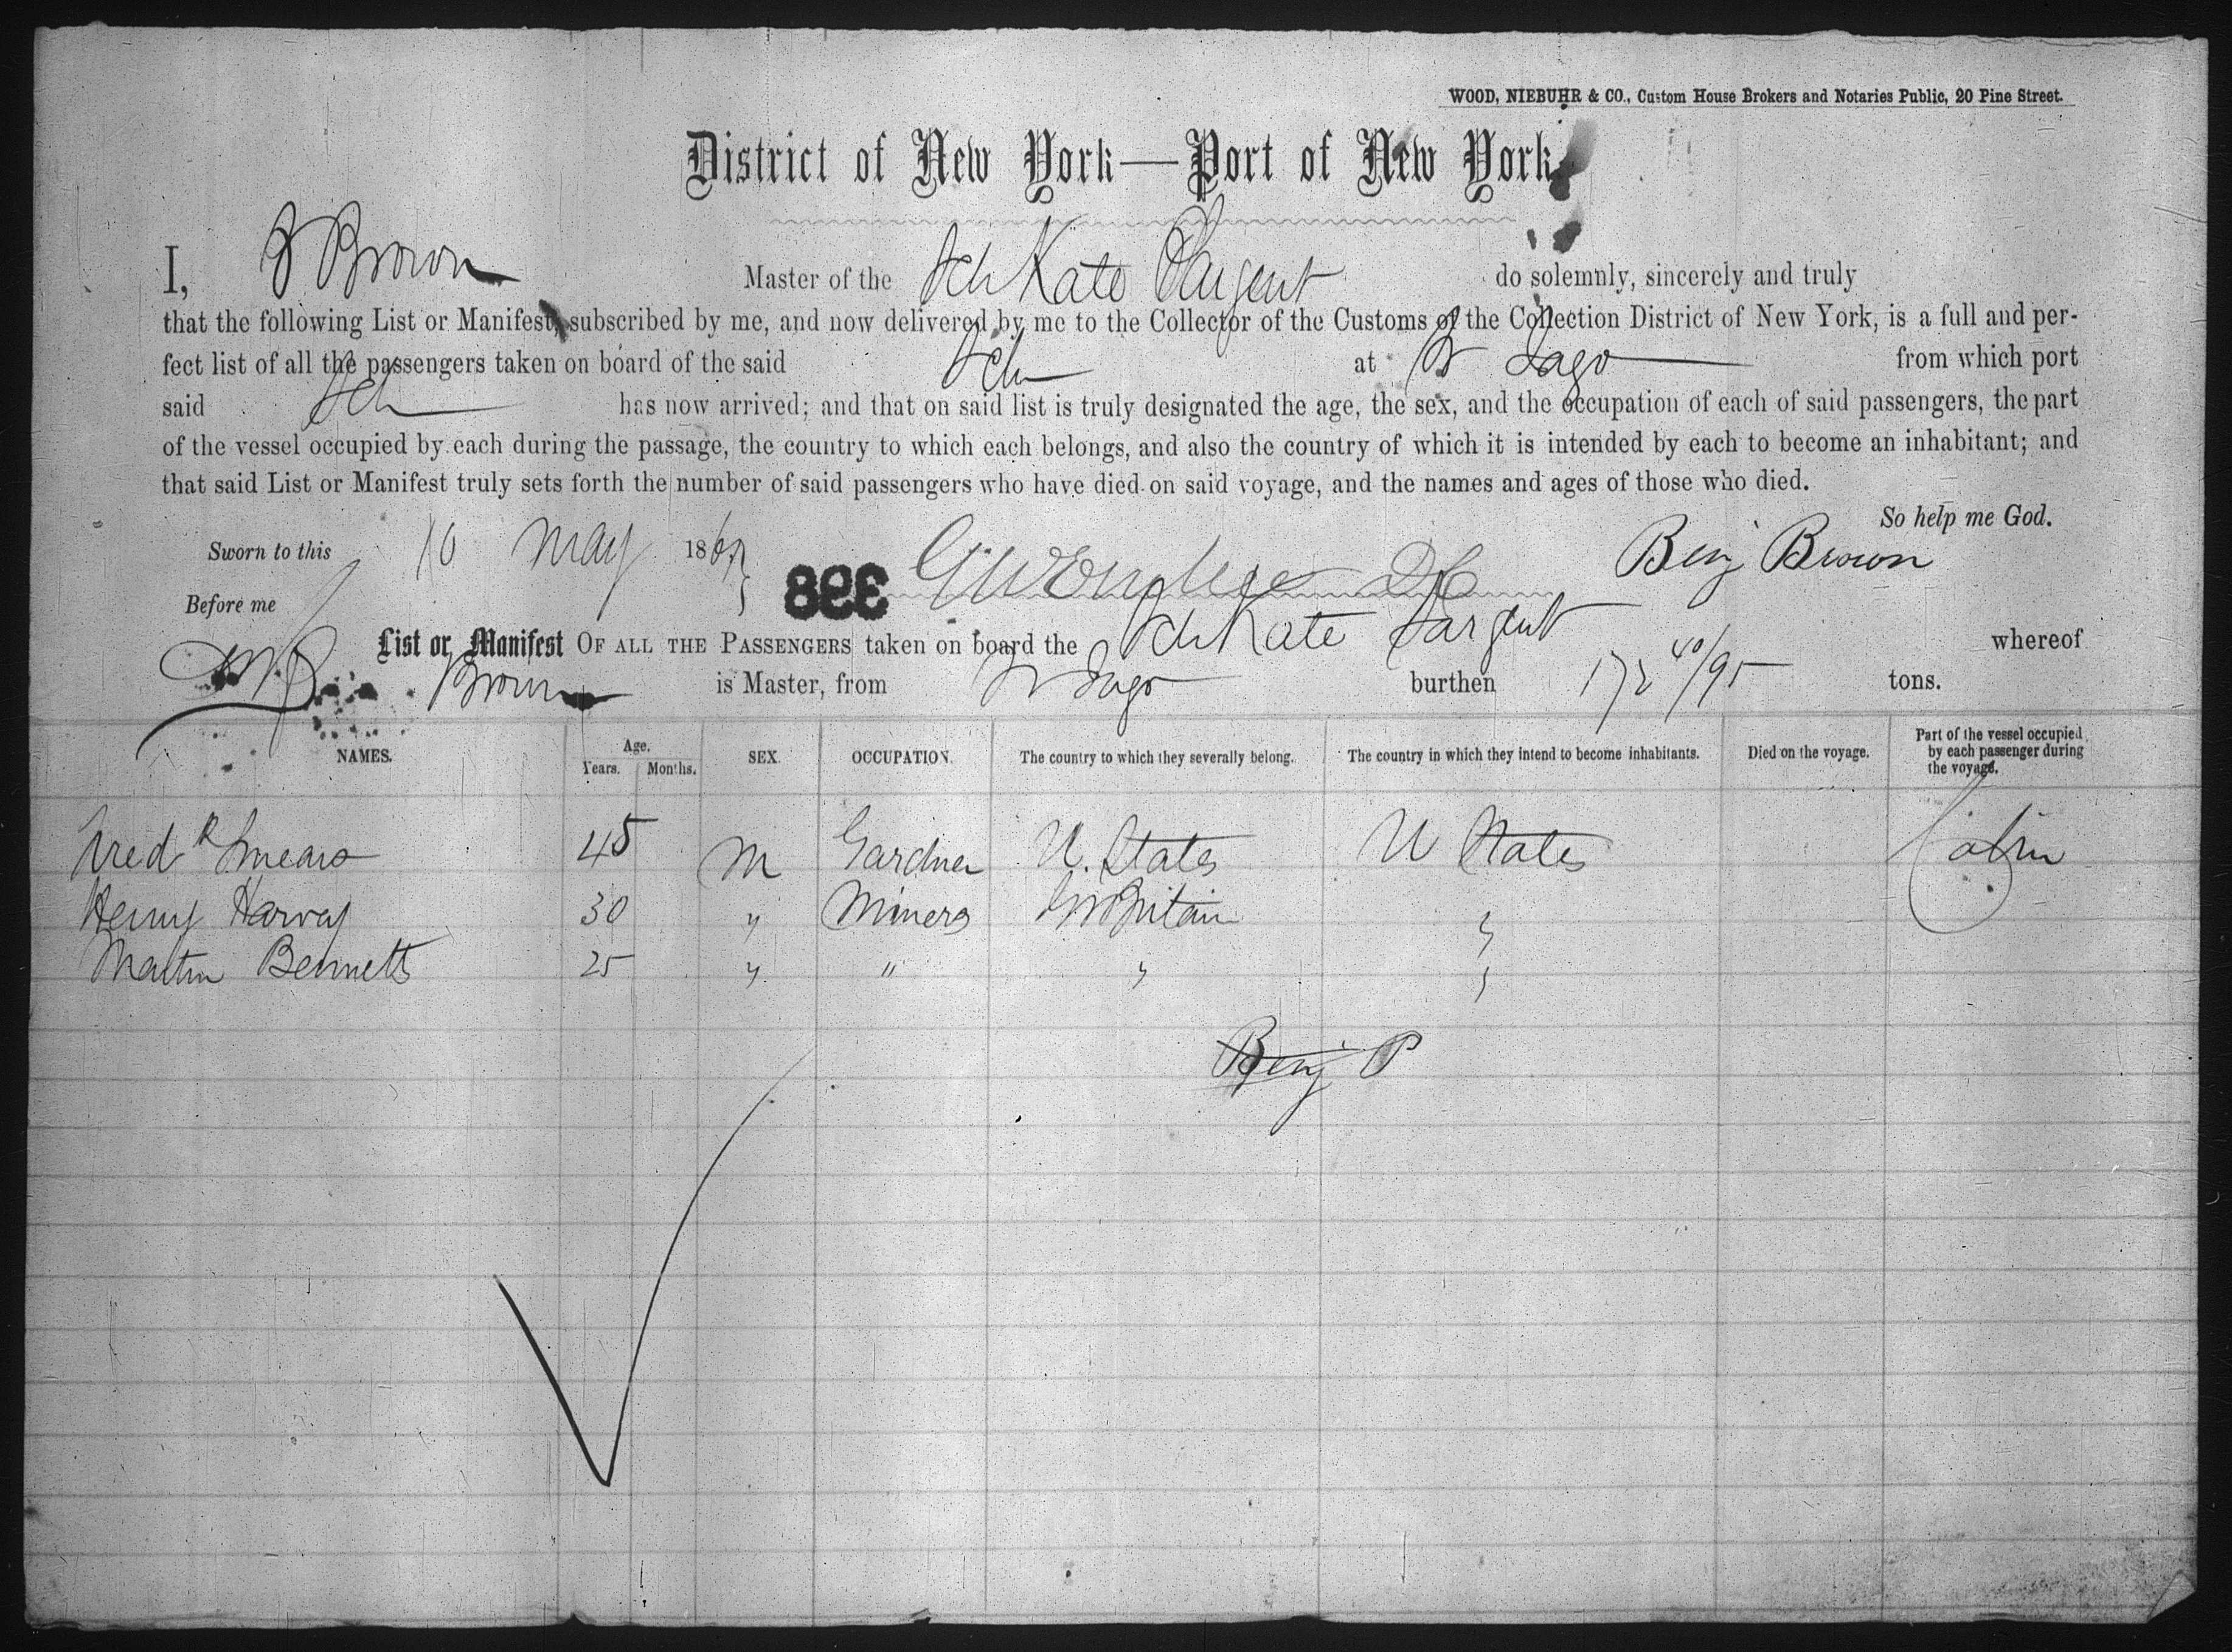 WOOD, NIEBUHR & CO., Custom House Brokers and Notaries Public, 20 Pine Street.
District of New York—Port of New York.
I, B Brown Master of the Sch Kate Sargent do solemnly, sincerely and truly
that the following List or Manifest, subscribed by me, and now delivered by me to the Collector of the Customs of the Collection District of New York, is a full and per-
fect list of all the passengers taken on board of the said Sch at St Jago from which port
said Sch has now arrived; and that on said list is truly designated the age, the sex, and the occupation of each of said passengers, the part
of the vessel occupied by each during the passage, the country to which each belongs, and also the country of which it is intended by each to become an inhabitant; and
that said List or Manifest truly sets forth the number of said passengers who have died on said voyage, and the names and ages of those who died.
So help me God.
Sworn to this 10 May 1867 Benj Brown
398
Before me
List or Manifest OF ALL THE PASSENGERS taken on board the Sch Kate Sargent whereof
Brown is Master, from St Jago burthen 172 40/95 tons.
NAMES. Age. Years. Months. SEX. OCCUPATION. The country to which they severally belong. The country in which they intend to become inhabitants. Died on the voyage. Part of the vessel occupied by each passenger during the voyage.
Fred R Smears 45 M Gardner U. States U States Cabin
Henry Harvey 30 " Miners Gr Britain "
Martin Bennetts 25 " " " "
Benj P